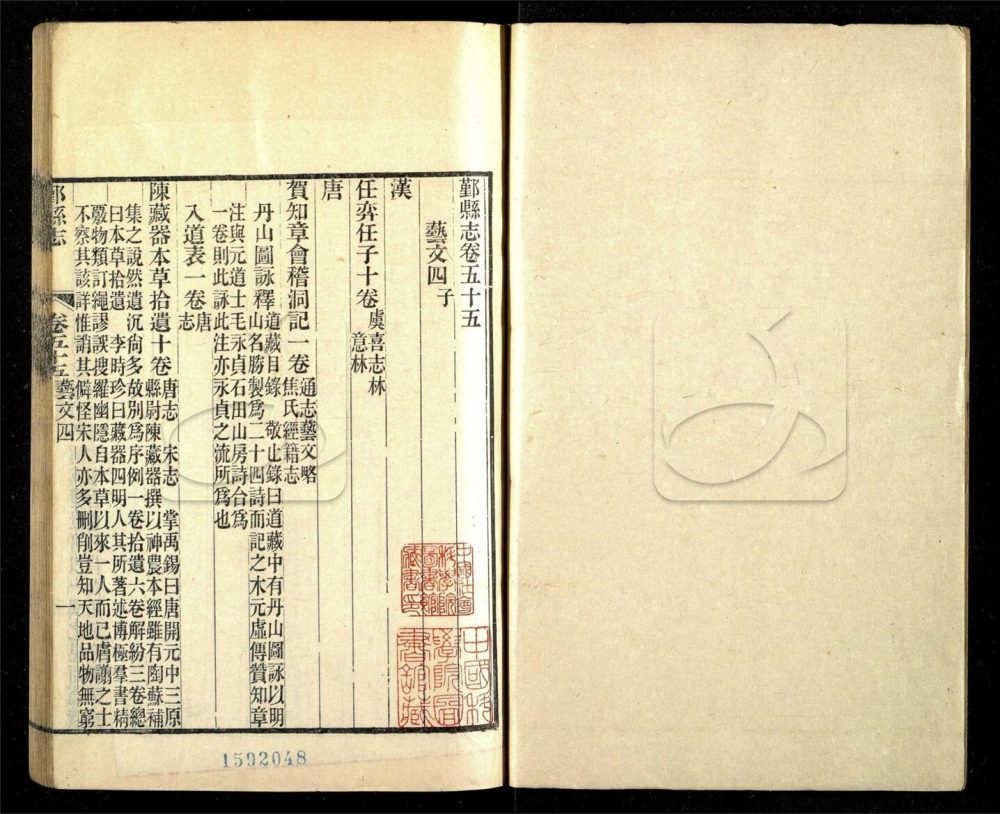 鄞縣志卷五十五
藝文四 子
漢
任弈任子十卷 虞喜志林
意林
唐
賀知章會稽洞記一卷 通志藝文略
焦氏經籍志
丹山圖詠釋 道藏目錄 敬止錄曰道藏中有丹山圖詠以明
山名勝製爲二十四詩而記之木元虛傳贊知章
注與元道士毛永貞石田山房詩合爲
一卷則此詠此注亦永貞之流所爲也
入道表一卷 唐
志
陳藏器本草拾遺十卷 唐志 宋志 掌禹錫曰唐開元中三原
縣尉陳藏器撰以神農本經雖有陶蘇補
集之說然遺沉尙多故別爲序例一卷拾遺六卷解紛三卷總
曰本草拾遺 李時珍曰藏器四明人其所著述博極羣書精
覈物類訂繩謬誤搜羅幽隱自本草以來一人而已膚譾之士
不察其該詳惟誚其僻怪宋人亦多刪削豈知天地品物無窮
鄞縣志 卷五十五 藝文四 一
中國社會
科學院
圖書館
藏書印
中國科
學院圖
書館藏
1592048